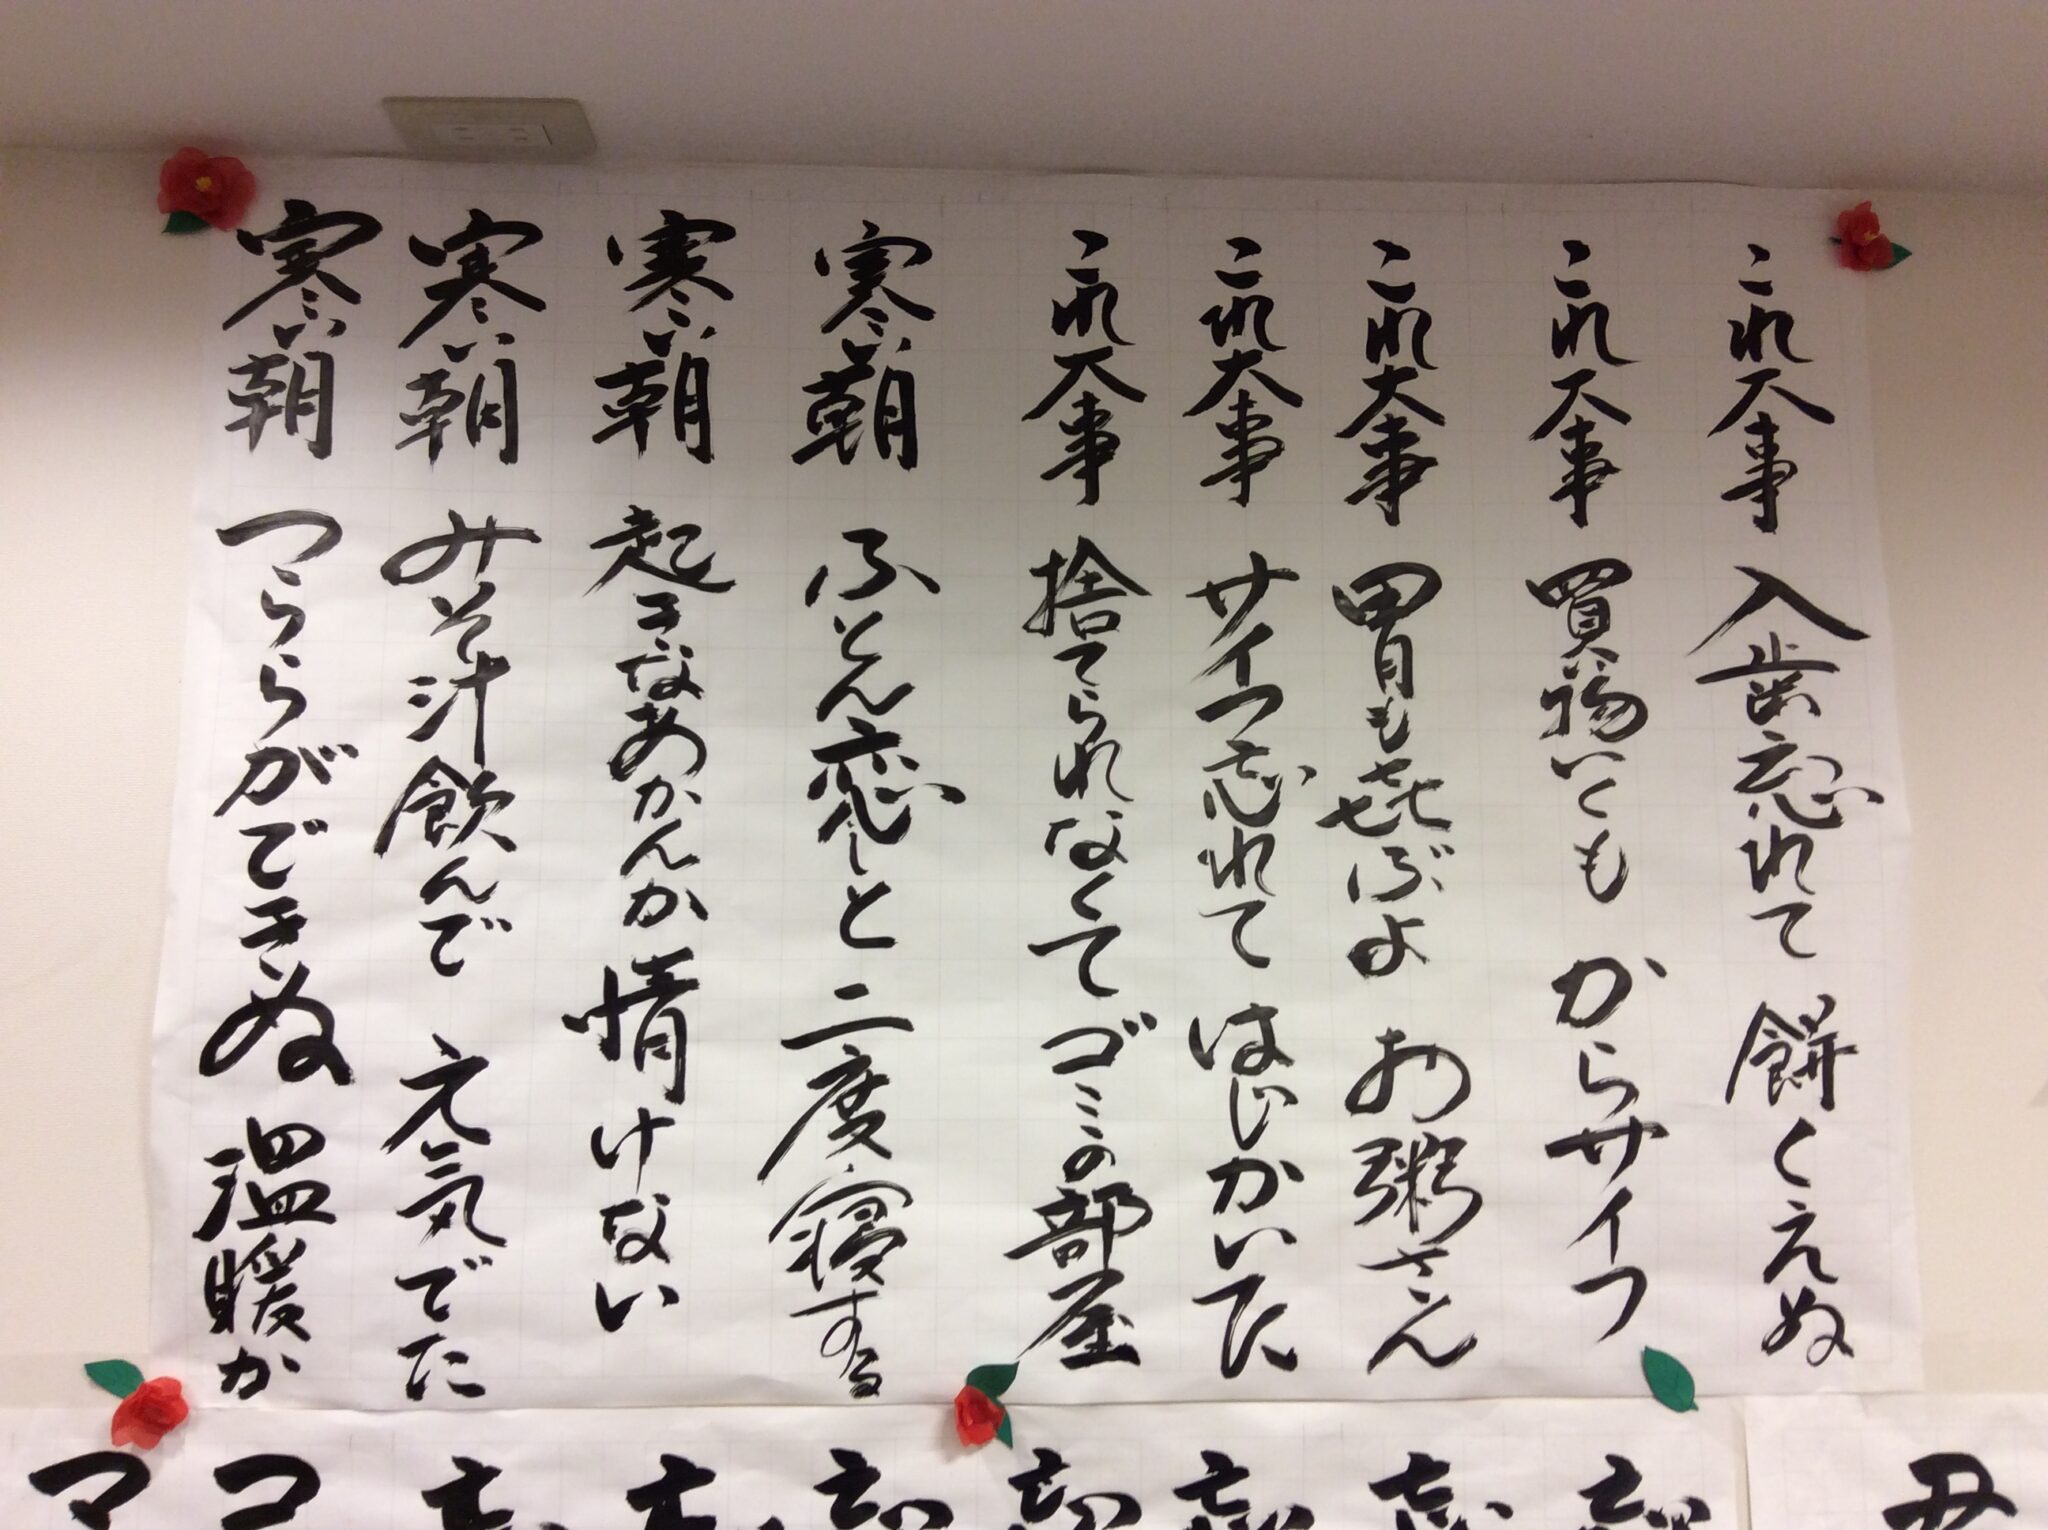 これ大事 入歯忘れて 餅くえぬ
これ大事 買い物いくも からサイフ
これ大事 胃も喜ぶよ お粥さん
これ大事 サイフ忘れて はじかいた
これ大事 捨てられなくて ゴミの部屋
寒い朝 ふとん恋しと 二度寝する
寒い朝 起きなあかんか 情けない
寒い朝 みそ汁飲んで 元気でた
寒い朝 つららができぬ 温暖か